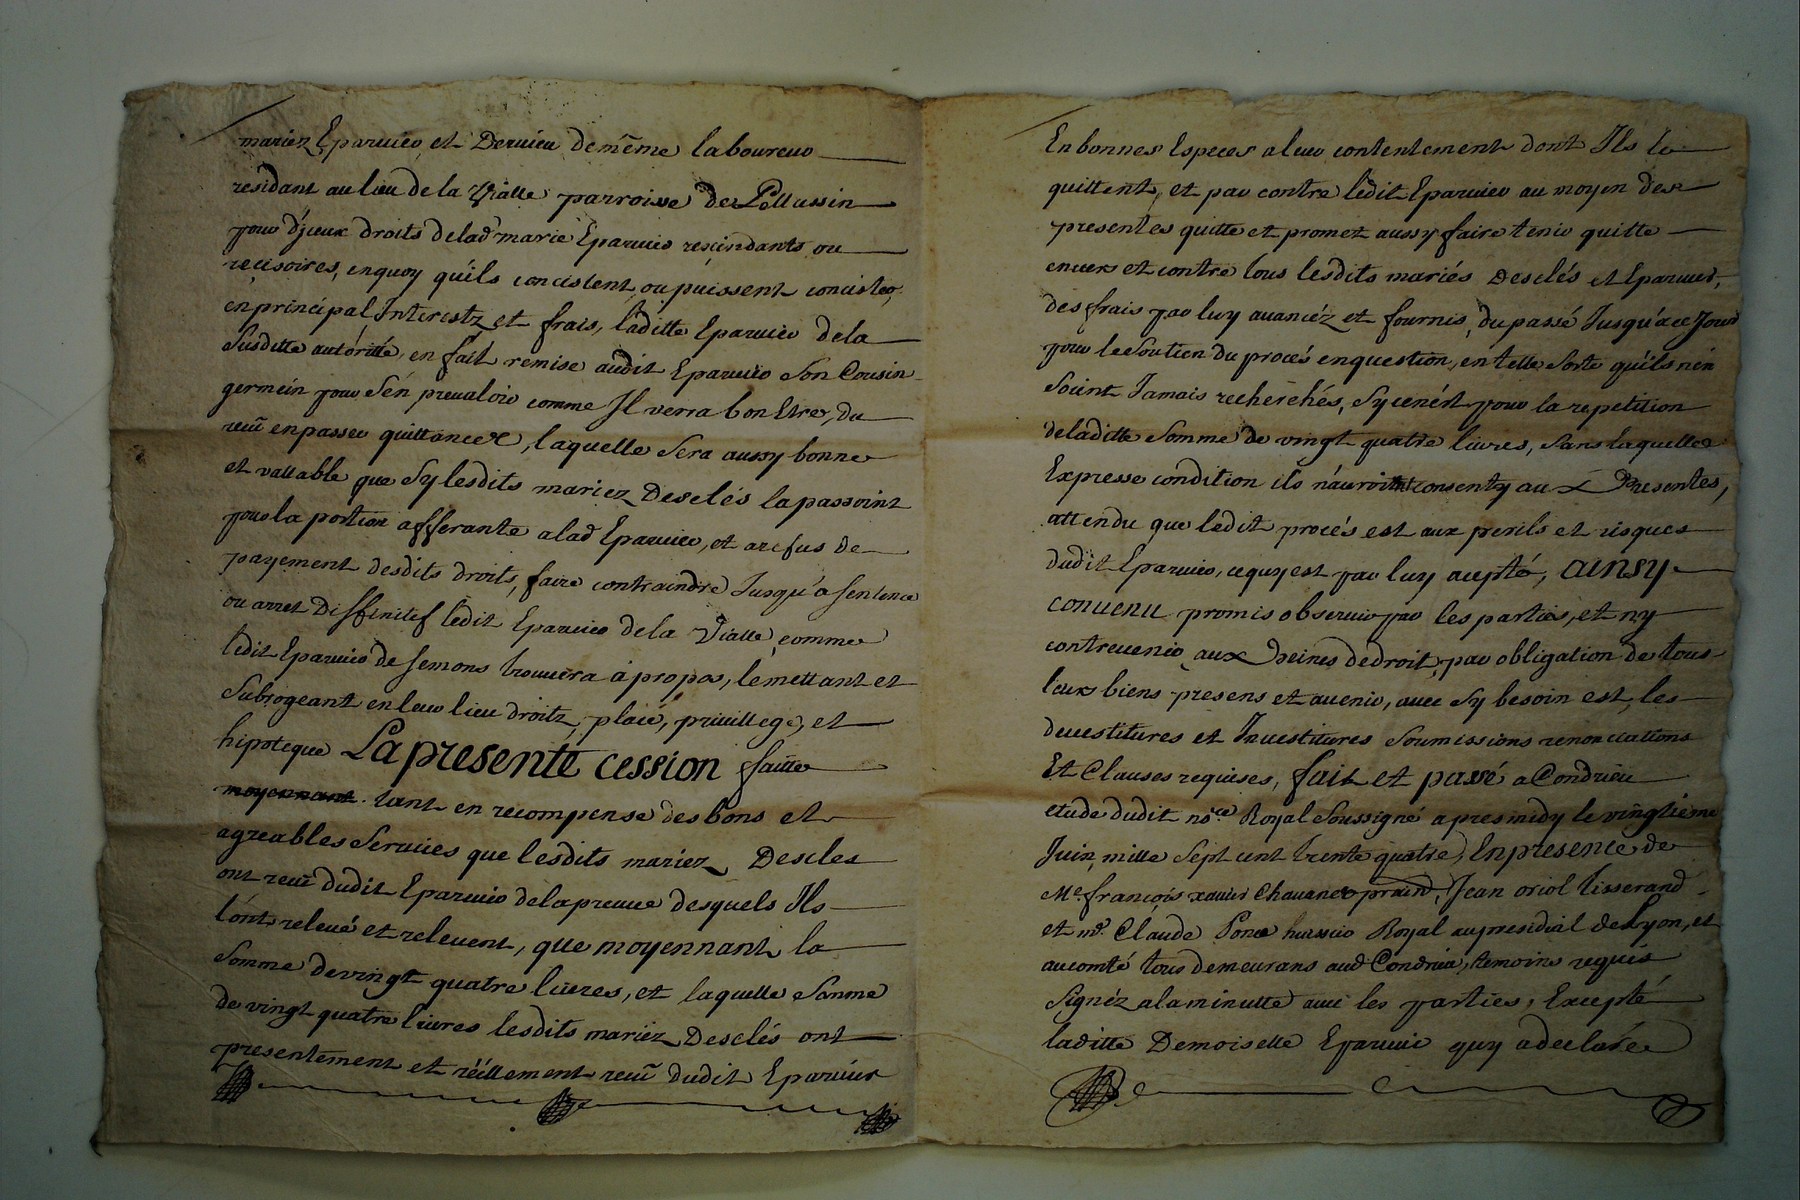 mariez Eparvier et Dervieu de même laboureur
residant au lieu de la Vialle parroisse de Pellussin
pour d'jceux droits de lad marie Eparvier rescindants ou
rescisoires, en quoy qu'ils concistent ou puissent concister,
en principal Interestz et frais, laditte Eparvier de la
susditte autórité, en fait remise audit Eparvier son Cousin
germein pour s'en prevaloir comme Il verra bon Etre, du
reçû en passer quittance, laquelle sera aussy bonne
et vallable que sy lesdits mariez Desclés la passoint
pour la portion afferante a lad Eparvier, et a refus de
payement desdits droits, faire contraindre Jusqu'a sentence
ou arret diffinitif ledit Eparvier de la Vialle comme
ledit Eparvier de semons trouvera à propos, le mettant et
subrogeant en leur lieu droitz, place, privillege, et
hipoteque La presente cession faitte
moyennant tant en recompense des bons et
agreables services que lesdits mariez Desclés
ont reçû dudit Eparvier de la preuve desquels Ils
l'ont relevé et relevent, que moyennant la
somme de vingt quatre livres, et laquelle somme
de vingt quatre livres lesdits mariez Desclés ont
presentement et réellement reçû dudit Eparvier
En bonnes Especes a leur contentement dont Ils le
quittent, et par contre ledit Eparvier au moyen des
presentes quitte et promet aussy faire tenir quitte
envers et contre tous lesdits mariés Desclés et Eparvier,
des frais par luy avancéz et fournis, du passé Jusqu'a ce Jour
pour le soutien du procés en question, en telle sorte qu'ils n'en
soint Jamais recherchés, sy ce n'est pour la repetition
de laditte somme de vingt quatre livres, sans laquelle
Expresse condition ils n'auroint consenty aux Presentes,
attendu que ledit procés est aux perils et risques
dudit Eparvier, ce quy est par luy acepté, ainsy
convenu promis observer par les parties, et ny
contrevenir aux peines de droit, par obligation de tous
leurs biens presens et avenir, avec sy besoin est, les
devestitures et Investitures soumissions renonciations
Et Clauses requises, fait et passé a Condrieu
etude dudit nre Royal soussigné apres midy le vingtieme
Juin mille sept cent trente quatre, En presence de
Me. françois xavier Chavanet praticien, Jean oriol tisserand
et me. Claude Ponce huissier Royal au presidial de Lyon, et
au comté tous demeurans aud Condrieu, temoins requis
signéz a la minutte avec les parties, Excepté
laditte Demoiselle Eparvier quy a declarée